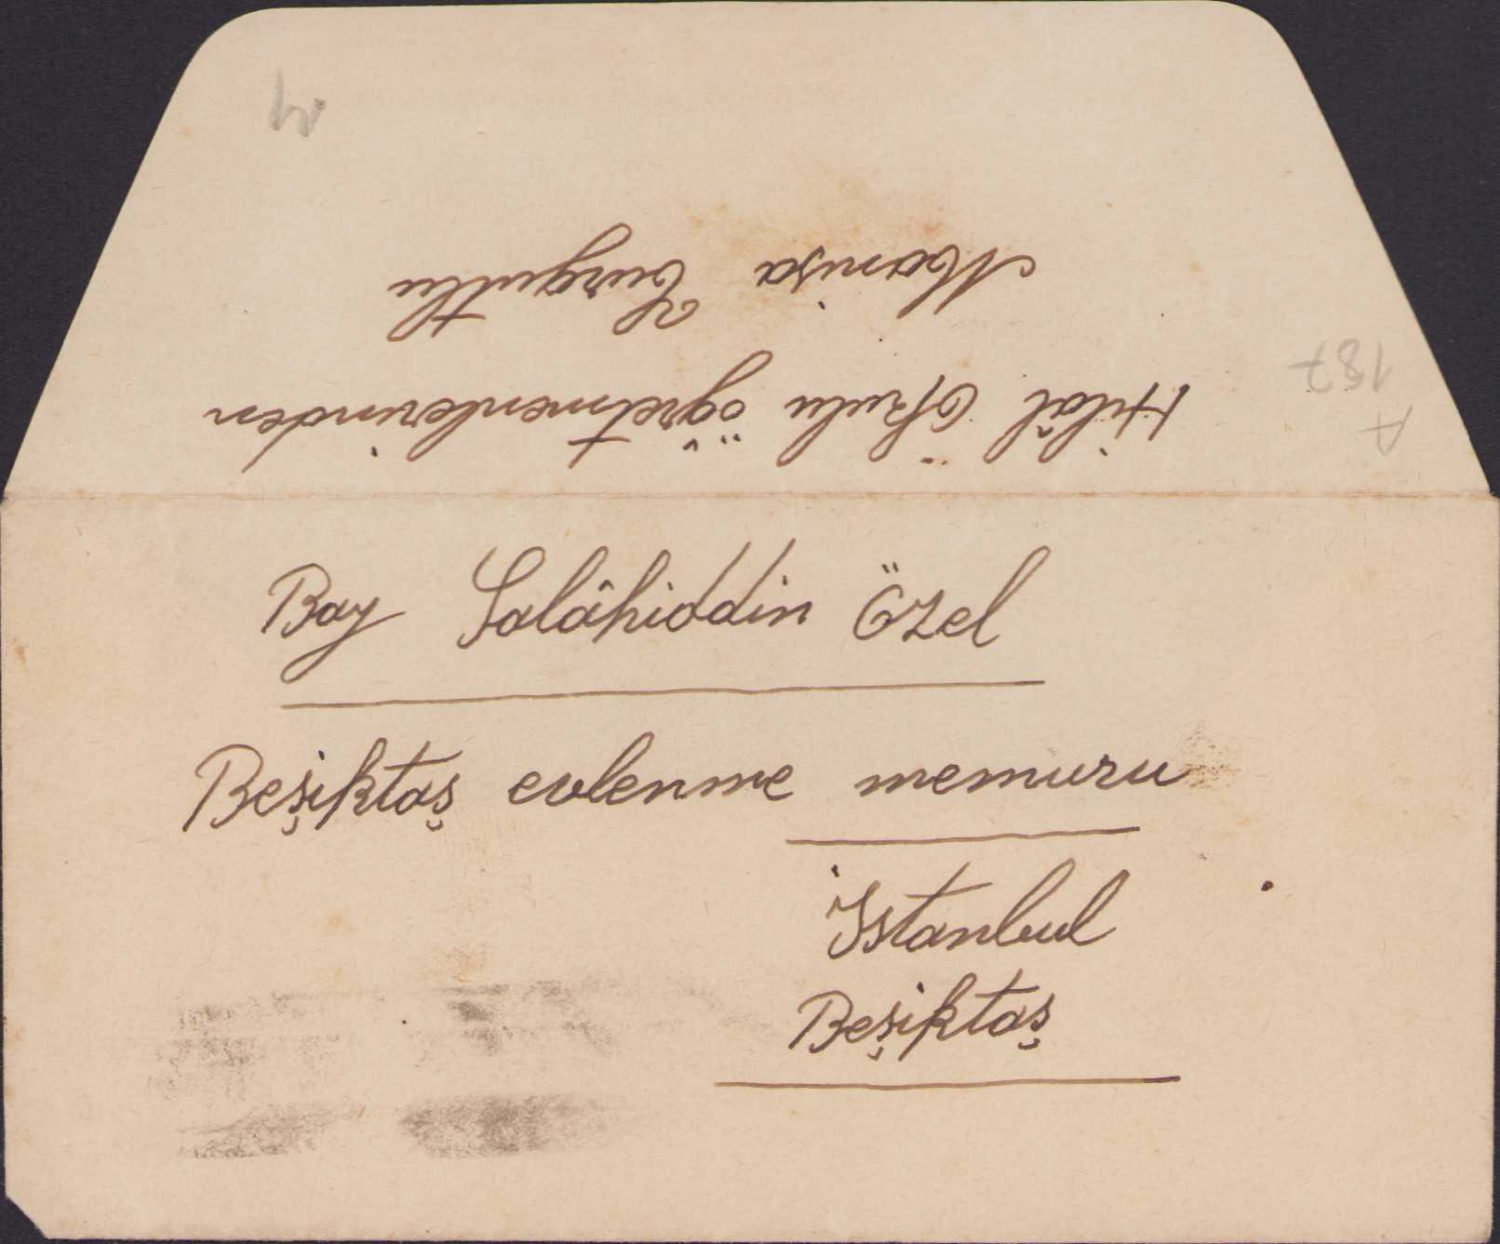 Hilâl Okulu öğretmenlerinden
Manisa Turgutlu
A
187
Bay Salâhiddin Özel
Beşiktaş evlenme memuru
İstanbul
Beşiktaş